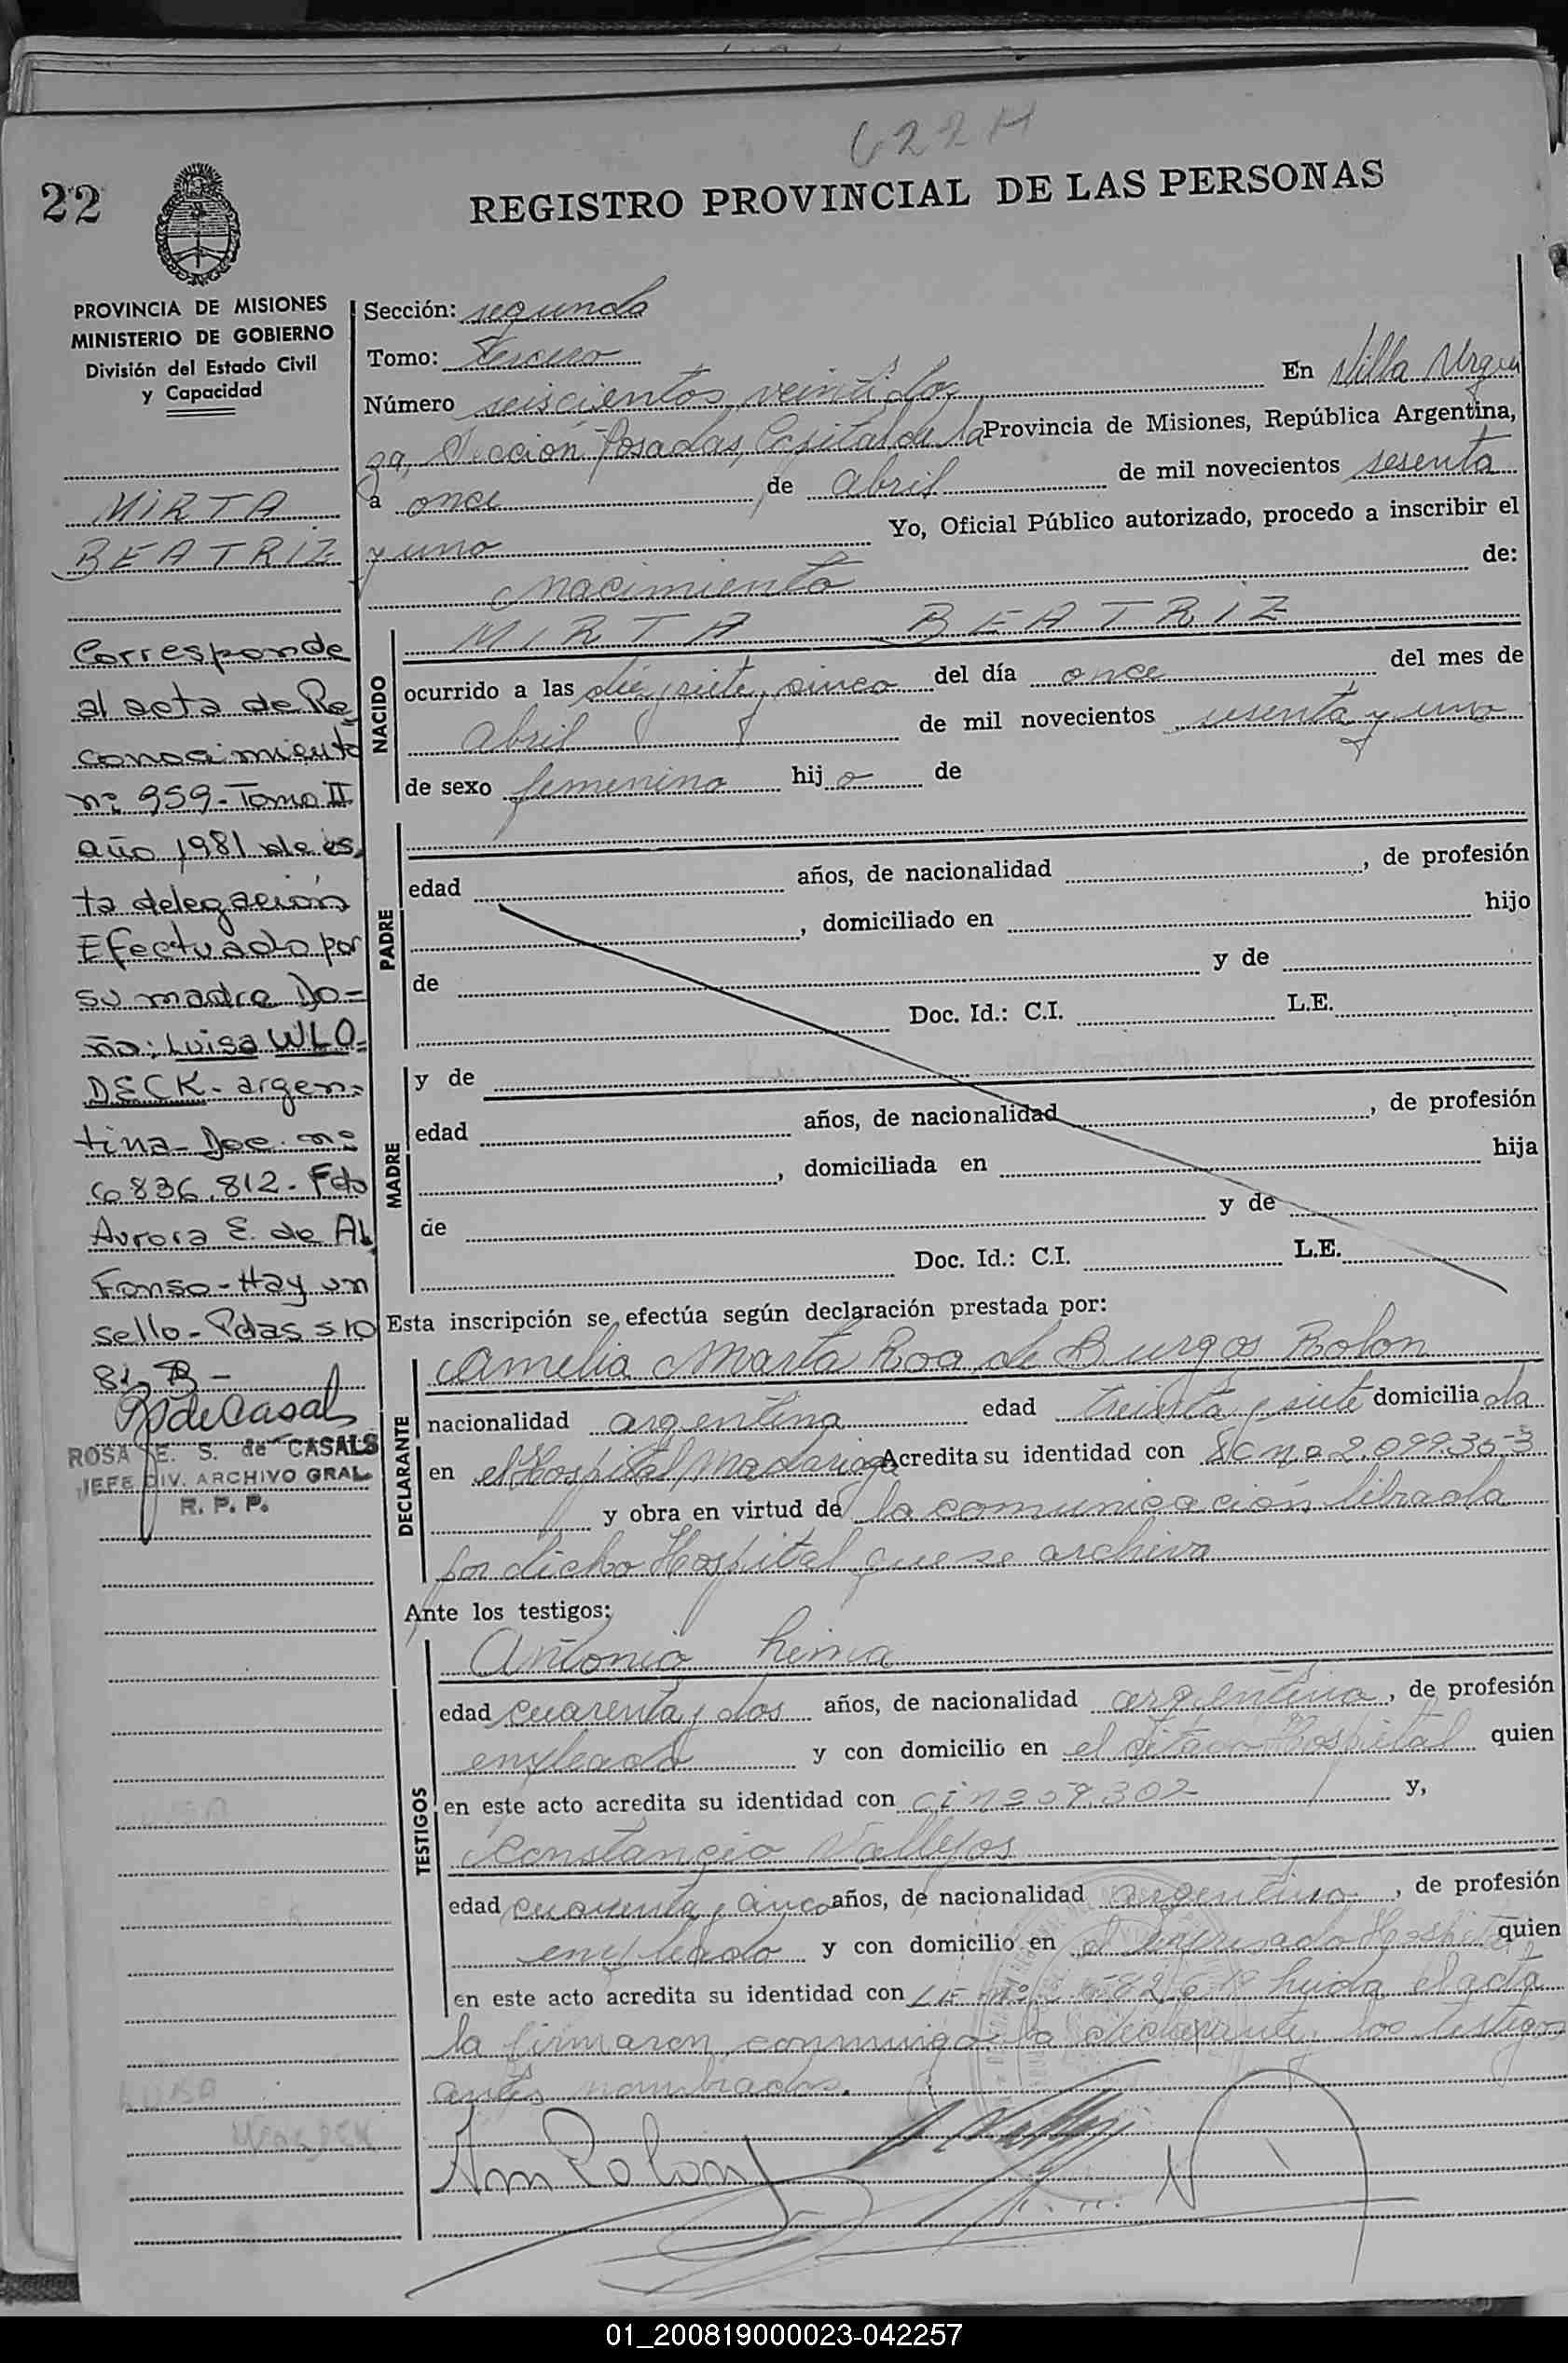 622 H
22
REGISTRO PROVINCIAL DE LAS PERSONAS
PROVINCIA DE MISIONES
MINISTERIO DE GOBIERNO
División del Estado Civil
y Capacidad
MIRTA
BEATRIZ
Corresponde
al acta de Re
conocimiento
nº 959-Tomo II
año 1981 de es
ta delegación
Efectuado por
su madre Do-
ña: Luisa WLO-
DECK- argen-
tina- Doc. nº
6836.812- Fdo
Aurora E. de Al
Fonso-Hay un
sello-Pdas 5 10
81. B-
RSdeCasals
ROSA E. S. de CASALS
JEFE DIV. ARCHIVO GRAL.
R. P. P.
Sección: segunda
Tomo: tercero
Número seiscientos veintidos En Villa Urqui
za, Sección Posadas, Capital de la Provincia de Misiones, República Argentina,
a once de abril de mil novecientos sesenta
y uno Yo, Oficial Público autorizado, procedo a inscribir el
nacimiento de:
NACIDO
MIRTA BEATRIZ
ocurrido a las diez y siete y cinco del día once del mes de
abril de mil novecientos sesenta y uno
de sexo femenino hij a de
PADRE
edad años, de nacionalidad , de profesión
, domiciliado en hijo
de y de
Doc. Id.: C.I. L.E.
MADRE
y de
edad años, de nacionalidad , de profesión
, domiciliada en hija
de y de
Doc. Id.: C.I. L.E.
Esta inscripción se efectúa según declaración prestada por:
DECLARANTE
Amelia Marta Roa de Burgos Rolon
nacionalidad argentina edad treinta y siete domicilia da
en el Hospital Madariaga Acredita su identidad con
y obra en virtud de la comunicación librada
por dicho Hospital que se archiva
Ante los testigos:
TESTIGOS
Antonio Leiva
edad cuarenta y dos años, de nacionalidad argentino, de profesión
empleado y con domicilio en el citado Hospital quien
en este acto acredita su identidad con CI nº 59.302 y,
Constancio Vallejos
edad cuarenta y cinco años, de nacionalidad argentino, de profesión
empleado y con domicilio en el expresado Hospital quien
en este acto acredita su identidad con LE nº leida el acta
la firmaron conmigo la declarante, los testigos
antes nombrados.
Am Rolon
01_200819000023-042257